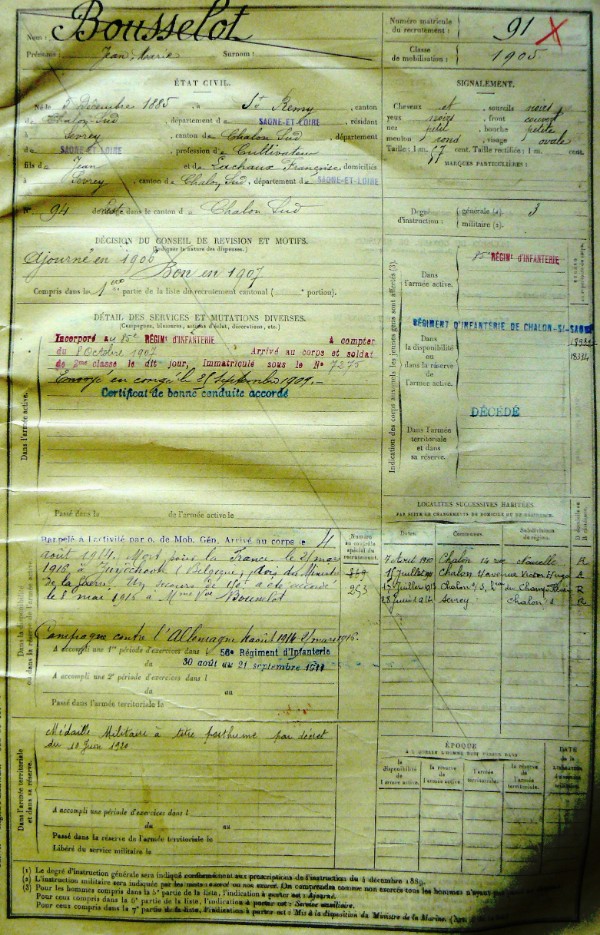 Nom : Bousselot
Prénoms : Jean Marie Surnom :
Numéro matricule du recrutement : 91
Classe de mobilisation : 1905
ÉTAT CIVIL.
Né le 5 Décembre 1885, à St Remy, canton
de Chalon Sud, département de SAONE-ET-LOIRE, résidant
à Sevrey, canton de Chalon Sud, département
de SAONE-ET-LOIRE, profession de Cultivateur
fils de Jean et de Françoise, domiciliés
à Sevrey, canton de Chalon Sud, département de SAONE-ET-LOIRE
N° 94 de liste dans le canton de Chalon Sud
SIGNALEMENT.
Cheveux et sourcils noirs
yeux noirs, front couvert
nez petit, bouche petite
menton rond, visage ovale
Taille : 1 m. 67 cent. Taille rectifiée : 1 m. cent.
MARQUES PARTICULIÈRES :
Degré d'instruction : générale (1). 3
militaire (2).
DÉCISION DU CONSEIL DE REVISION ET MOTIFS.
Ajourné en 1906
Bon en 1907
Compris dans la 1ère partie de la liste du recrutement cantonal ( portion).
DÉTAIL DES SERVICES ET MUTATIONS DIVERSES.
(Campagnes, blessures, actions d'éclat, décorations, etc.)
Dans l'armée active.
Incorporé au 85e RÉGIMt D'INFANTERIE A compter
du 8 Octobre 1907 Arrivé au corps et soldat
de 2me classe le dit jour, Immatriculé sous le N° 7275
Envoyé en congé le 25 Septembre 1909.-
Certificat de bonne conduite accordé
Passé dans la de l'armée active le
Indication des corps auxquels les jeunes gens sont affectés (3).
Dans l'armée active.
85e RÉGIMt D'INFANTERIE
Dans la disponibilité ou dans la réserve de l'armée active.
RÉGIMENT D'INFANTERIE DE CHALON-S/-SAONE
DÉCÉDÉ
Dans l'armée territoriale et dans sa réserve.
LOCALITÉS SUCCESSIVES HABITÉES,
PAR SUITE DE CHANGEMENTS DE DOMICILE OU DE RÉSIDENCE.
Dates. Communes. Subdivisions de région.
Chalon 14 rue R
Chalon 4 avenue Victor Hugo R
Chalon R
28 Juin 1914 Sevrey Chalon R
Rappelé à l'activité par o. de Mob. Gén. Arrivé au corps le 4
août 1914. Mort pour la France le 2 mars
1916 à (Belgique)
de la Guerre. Un secours de 150f a été accordé
le 8 mai 1916 à Mme Vve Bousselot
253
Campagne contre l'Allemagne 4 août 1914 2 mars 1916.
A accompli une 1re période d'exercices dans l 56e Régiment d'Infanterie
30 août au 21 septembre 1911
A accompli une 2e période d'exercices dans l
du au
Passé dans l'armée territoriale le
Dans l'armée territoriale et dans sa réserve.
Médaille Militaire à titre posthume par décret
du 10 Juin 1920
A accompli une période d'exercices dans l
du au
Passé dans la réserve de l'armée territoriale le
Libéré du service militaire le
ÉPOQUE
À LAQUELLE L'HOMME DOIT PASSER DANS
la disponibilité de l'armée active.
la réserve de l'armée active.
l'armée territoriale.
la réserve de l'armée territoriale.
DATE de la LIBÉRATION du service militaire
(1) Le degré d'instruction générale sera indiqué conformément aux prescriptions de l'instruction du 4 décembre 1889.
(2) L'instruction militaire sera indiquée par les mots exercé ou non exercé. On comprendra comme non exercés tous les hommes n'ayant pas
(3) Pour les hommes compris dans la 2e partie de la liste, l'indication à porter est : Ajourné.
Pour ceux compris dans la 5e partie de la liste, l'indication à porter est : Service auxiliaire.
Pour ceux compris dans la 7e partie de la liste, l'indication à porter est : Mis à la disposition du Ministre de la Marine